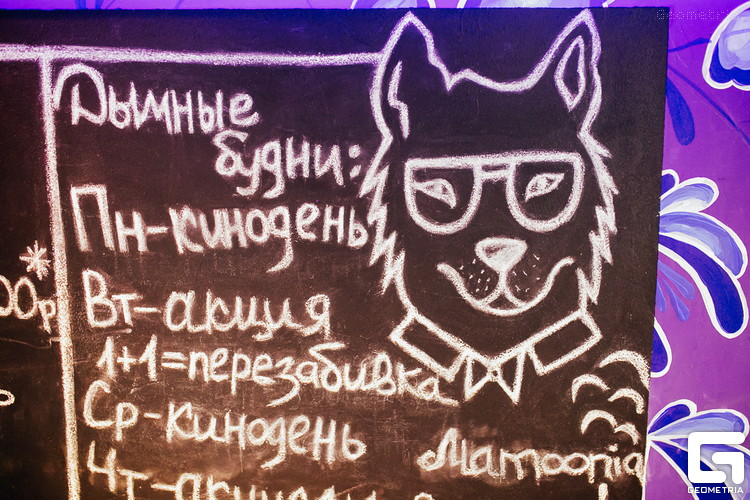 Дымные
будни:
Пн-кинодень
Вт-акция
00р
1+1=перезабивка
Ср-кинодень
Mamoonia
Чт-
GEOMETRIA